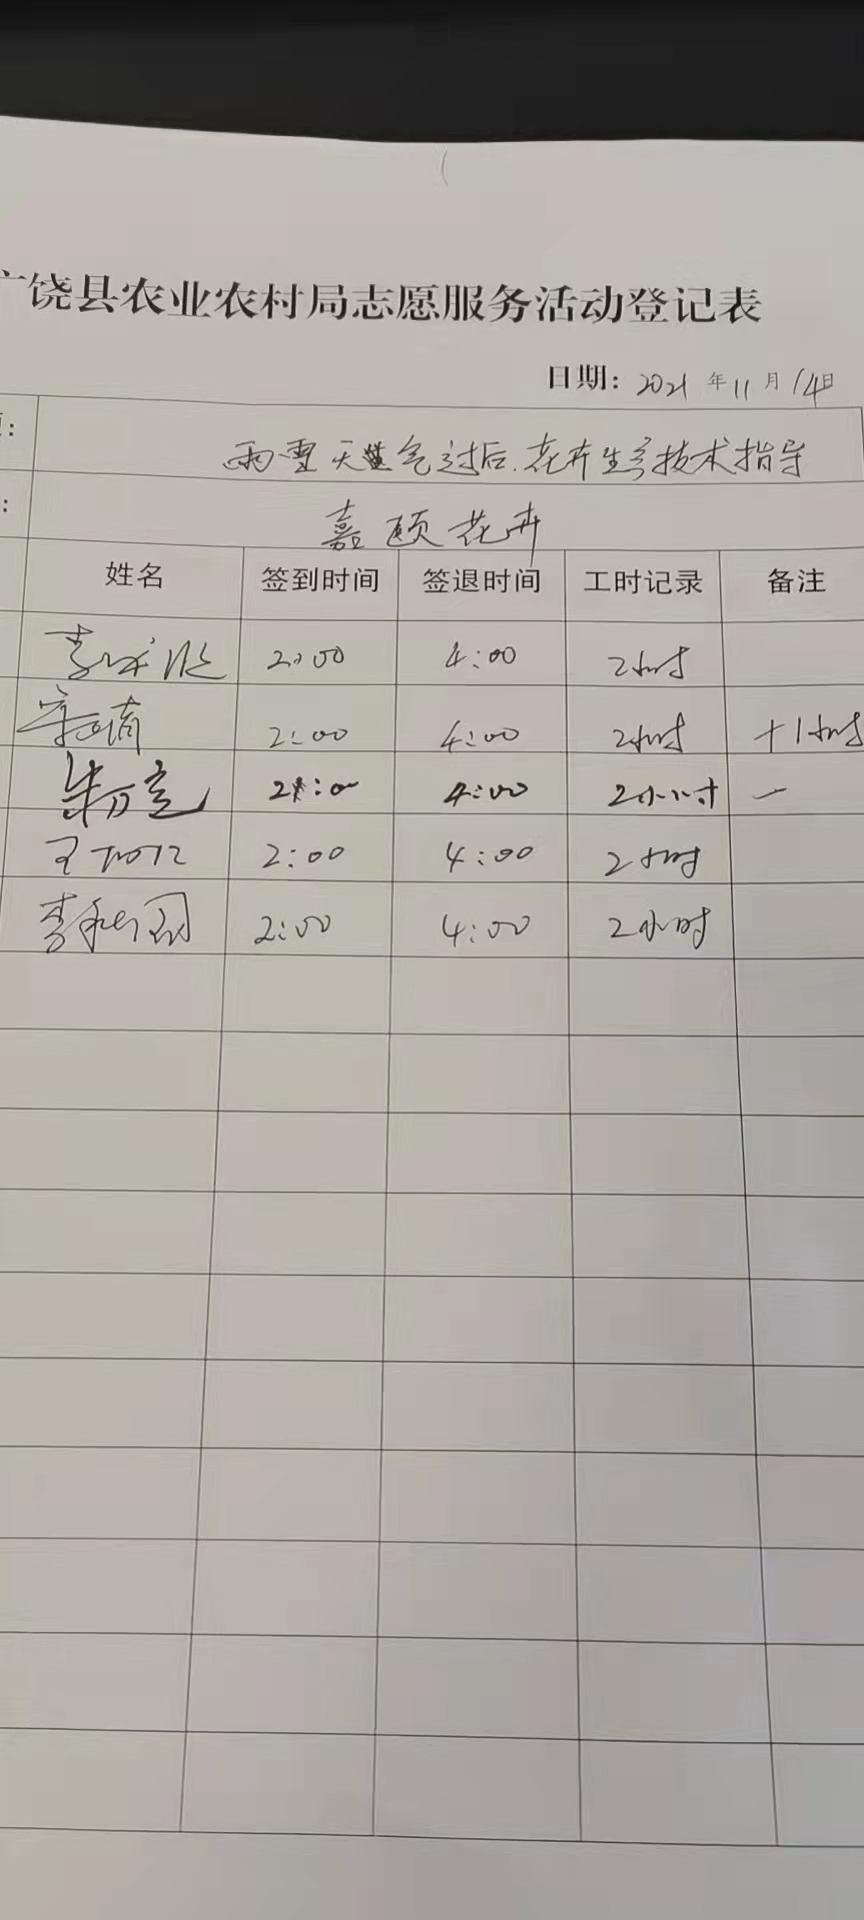 广饶县农业农村局志愿服务活动登记表
日期: 2021 年 11 月 14日
雨雪天气过后.花卉生产技术指导
嘉颐花卉
姓名 签到时间 签退时间 工时记录 备注
2:00 4:00 2小时
2:00 4:00 2小时 +1小时
2:00 4:00 2小时 一
王 2:00 4:00 2小时
李 2:00 4:00 2小时